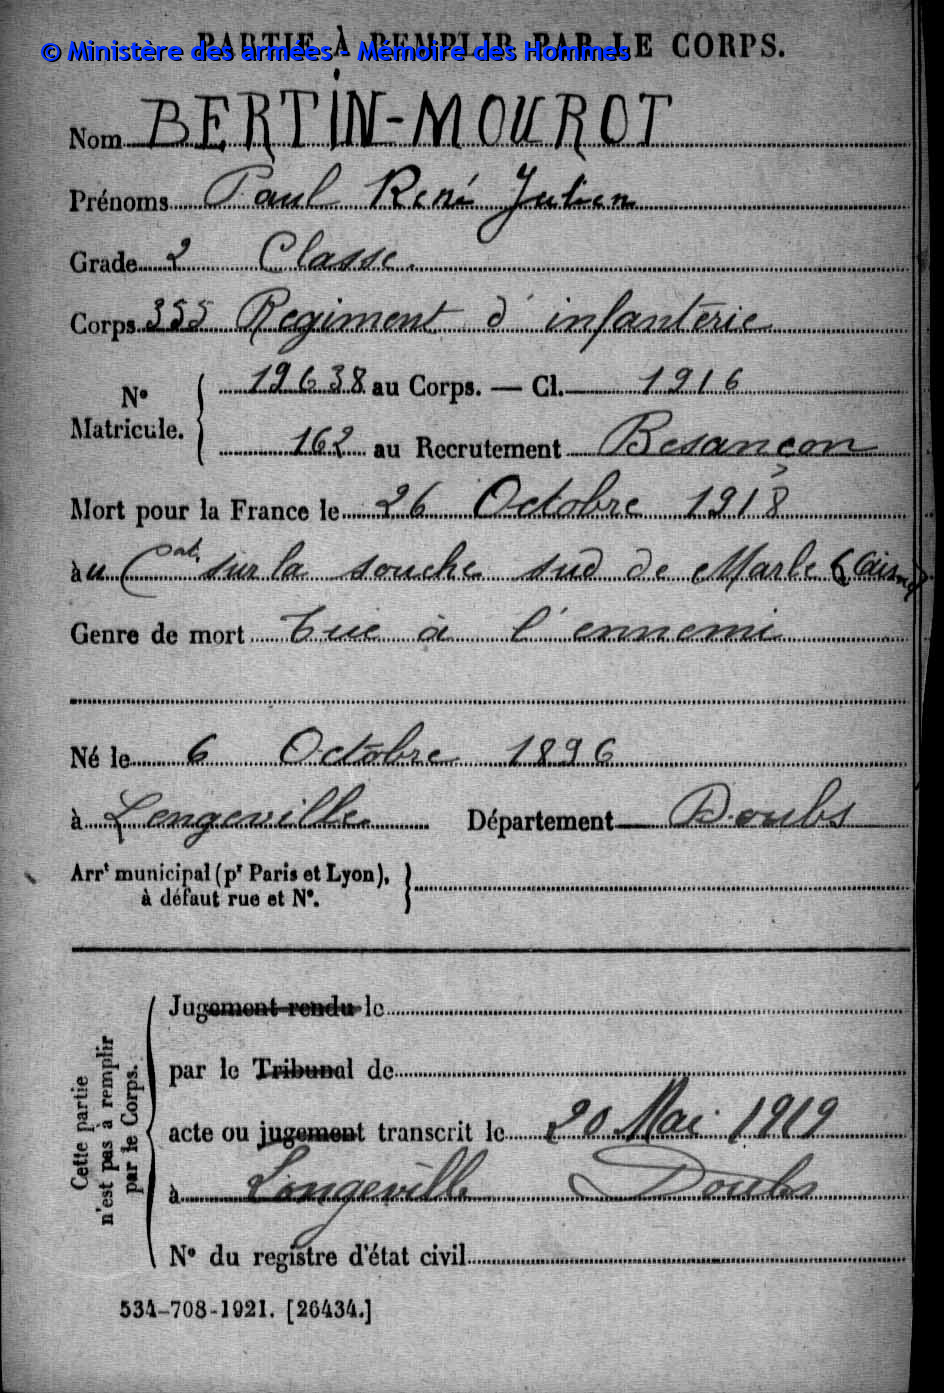 PARTIE À REMPLIR PAR LE CORPS.
© Ministère des armées - Mémoire des Hommes
Nom BERTIN-MOUROT
Prénoms Paul René Julien
Grade 2 Classe.
Corps 355 Regiment d'infanterie
N° Matricule. { 19638 au Corps. — Cl. 1916
162 au Recrutement Besançon
Mort pour la France le 26 Octobre 1918
à u Cat. sur la souche sud de Marle (Aisne)
Genre de mort Tué à l'ennemi
Né le 6 Octobre 1896
à Longeville Département Doubs
Arrt municipal (pr Paris et Lyon),
à défaut rue et N°.
Cette partie n'est pas à remplir par le Corps.
Jugement rendu le
par le Tribunal de
acte ou jugement transcrit le 20 Mai 1919
à Longeville Doubs
N° du registre d'état civil
534-708-1921. [26434.]